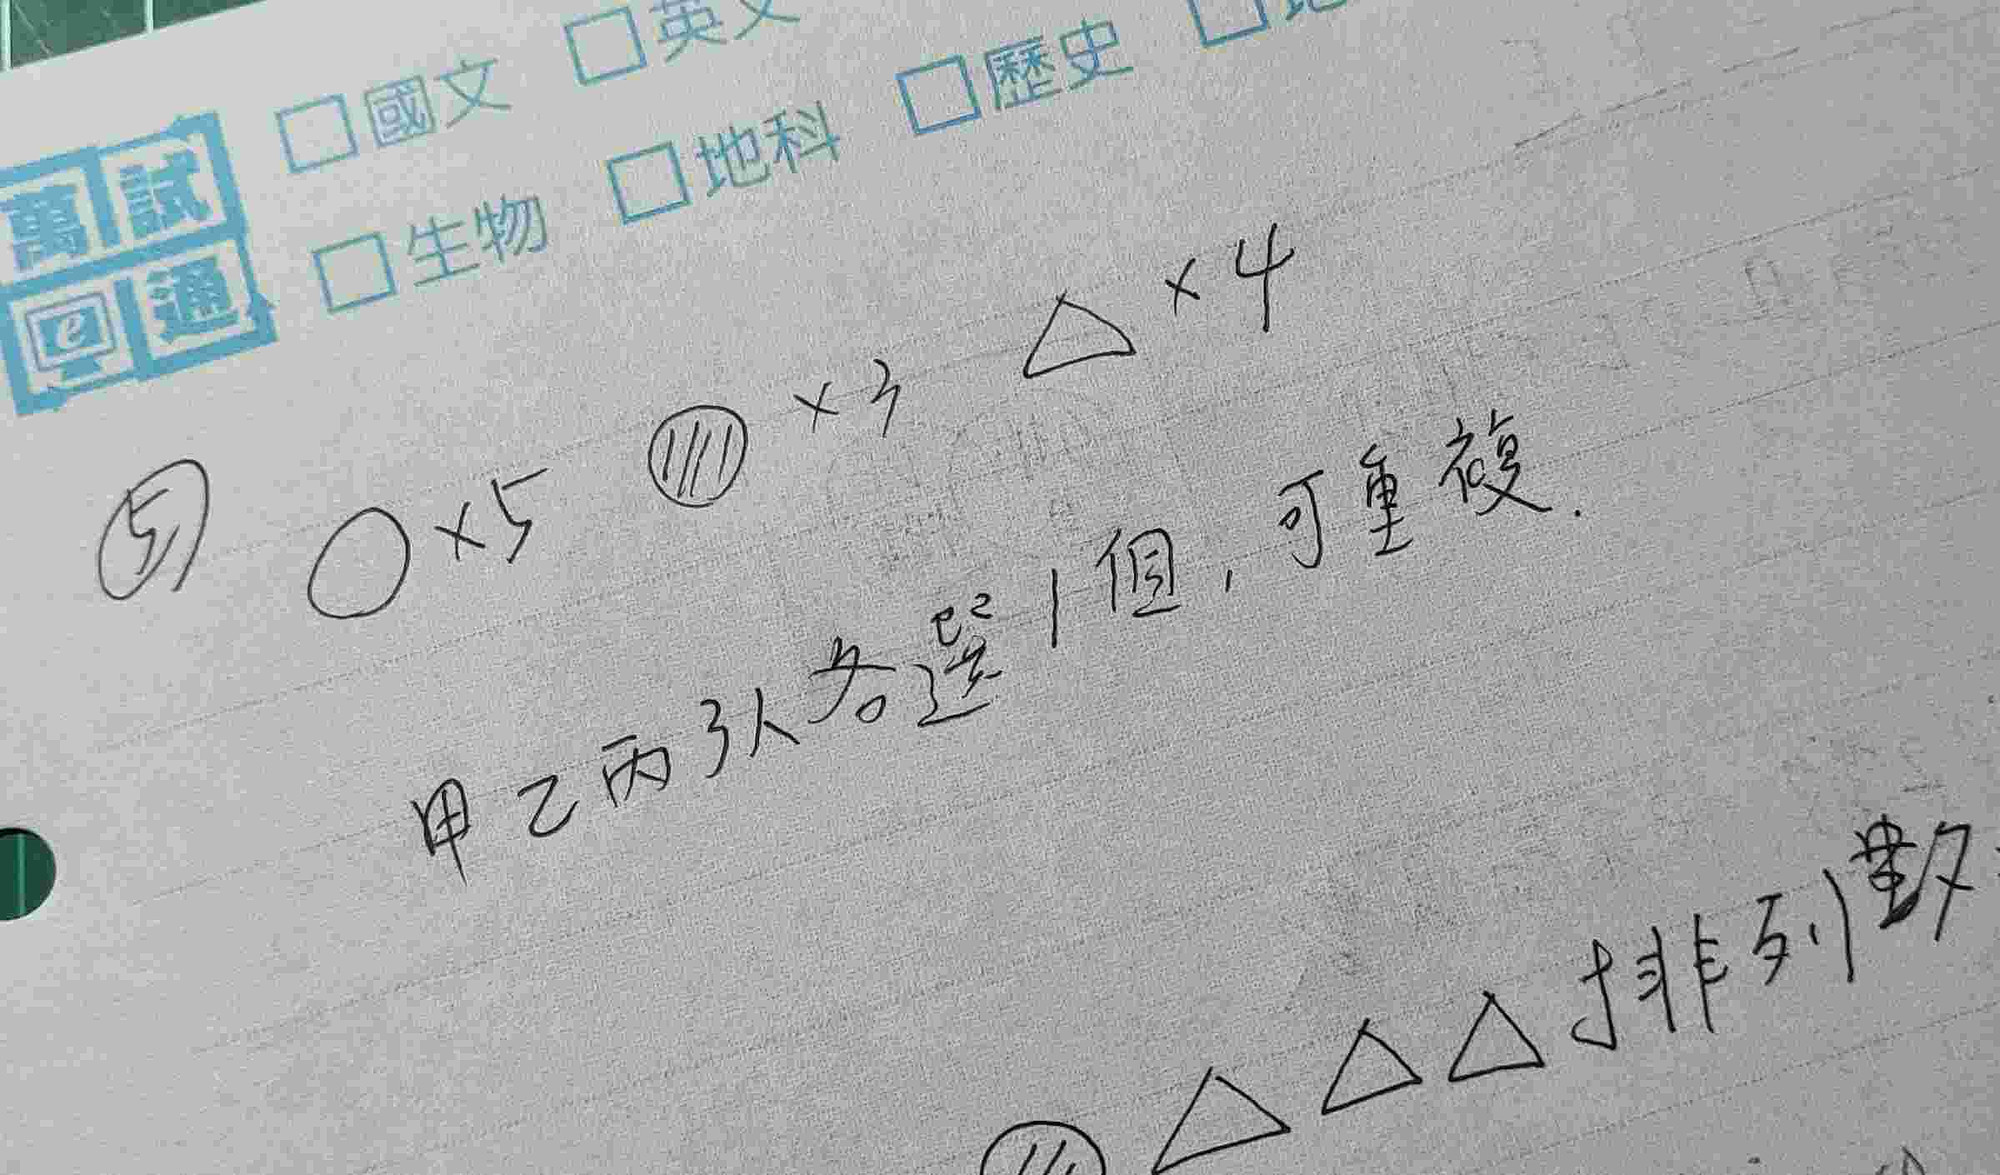 □國文 □英文
□生物 □地科 □歷史
萬試
e通
⑤ ○×5 ×3 △×4
甲乙丙3人各選1個,可重複.
△△△排列數